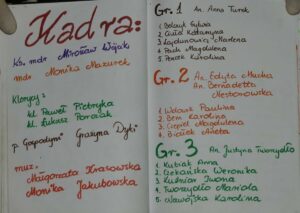 Kadra:
Ks. mdr Mirosław Wójcik
mdr Monika Mazurek
Klerycy:
kl. Paweł Pietryka
kl. Łukasz Porczak
p. Gospodyni Grażyna Dyk
muz.
Małgorzata Krasowska
Monika Jakubowska
Gr. 1 An. Anna Turek
1 Sylwia
2 Katarzyna
3 Marlena
4 Magdalena
5 Karolina
Gr. 2 An. Edyta Mucha
An. Bernadetta
Nestorowska
1 Paulina
2 Bem Karolina
3 Magdalena
4 Aneta
Gr. 3 An. Justyna Tworzydło
1 Kubiak Anna
2 Weronika
3 Kuśmiar Iwona
4 Tworzydło Mariola
5 Nawojska Karolina